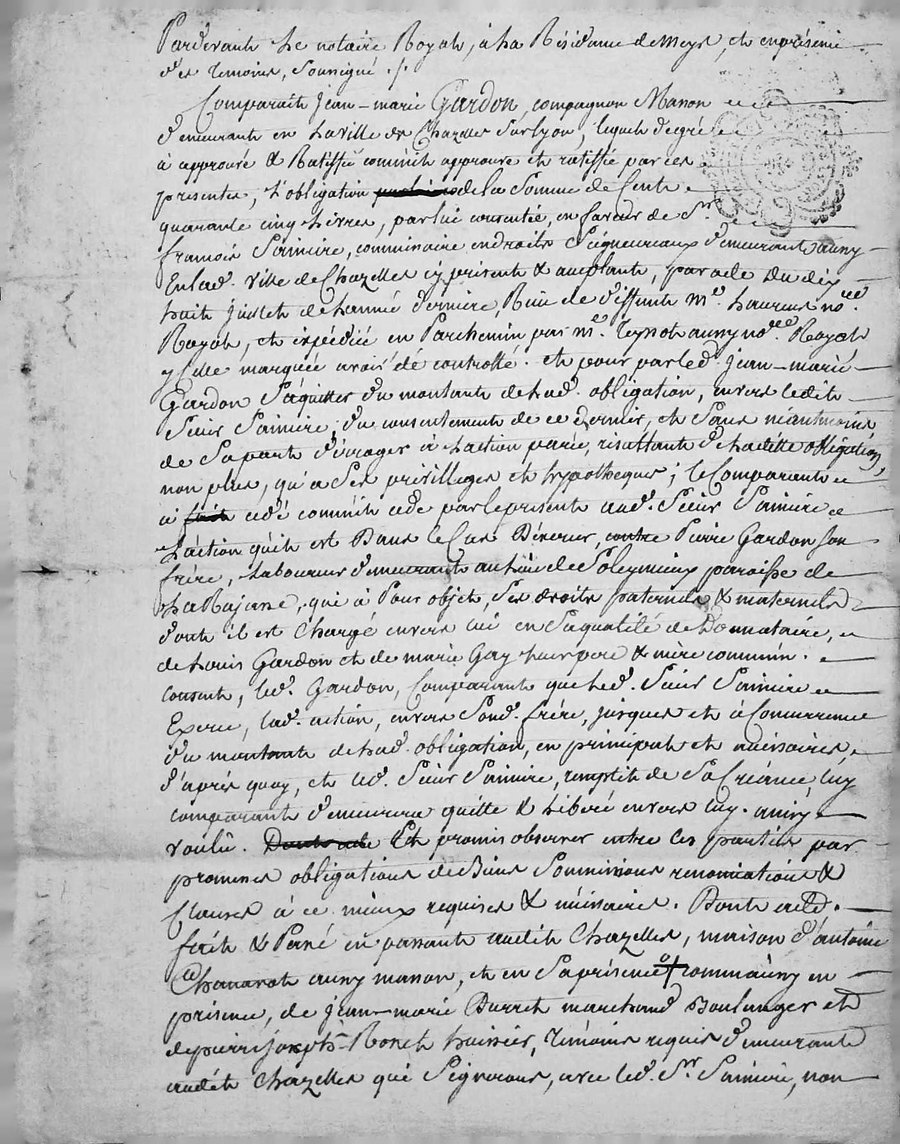 Pardevant Le notaire Royal, à La Résidance de Meys, et en présence
des temoins, soussigné ./.
Comparait Jean-marie Gardon, compagnon Masson
demeurant en La ville de Chazelles sur Lyon, lequel de gré
à approuvé & Ratiffié comm'il approuve et ratiffie par ces
presentes, L'obligation de la somme de Cent
quarante cinq Livres, par lui consentie, en faveur de Sr.
françois commissaire en droits Seigneureaux demeurant aussy
En lad. ville de Chazelles cy présent & acceptant, par acte Du dix
huit juillet de L'année derniere, Reçu de deffunt me. Laurens nore.
Royal, et expédiée en Parchemin, par me. aussy nore. Royal
y celle marquée avoir été controllé. et pour par led. Jean-marie
Gardon S'aquitter du montant de Lad. obligation, envers Ledit
Sieur du consentement de ce dernier, et Sans néantmoins
de Sa part déroger à L'action parée, résultante de La ditte obligation,
non plus, qu'a Ses privilleges et hypotheques; le Comparant
à fait cedé comm'il cede par le présent aud. Sieur
L'action qu'il est Dans le Cas D'éxercer, contre Pierre Gardon Son
frère, Laboureur demeurant au lieu de Soleymieux paroisse de
La Rajasse, qui à Pour objet, Ses droits paternels & maternels
dont il est Chargé envers lui en Saqualité de Donnataire,
de Louis Gardon et de marie Gay Leurs pere & mère commun.
consent, led. Gardon, Comparant que Led. Sieur
Exerce, lad. action, envers Sond. frère, jusques et à Concurrence
du montant de Lad. obligation, en principal et accessoires,
d'après quoy, et led. Sieur remplit de Sa Créance, luy
comparant demeurera quitte & Libéré envers luy. ainsy
voulû. Dont acte Et promis observer entre les parties par
promesses obligations de Biens Soumissions renonciations &
Clauses à ce mieux requises & nécessaires. Dont acte.
fait & Passé en passant audit Chazelles, maison d'antoine
aussy masson, et en Sa présence comm'aussy en
présence, de Jean-marie Marchand Boulanger et
de pierre joseph huissier, témoins requis demeurants
audit Chazelles qui Signerons, avec led. Sr. non